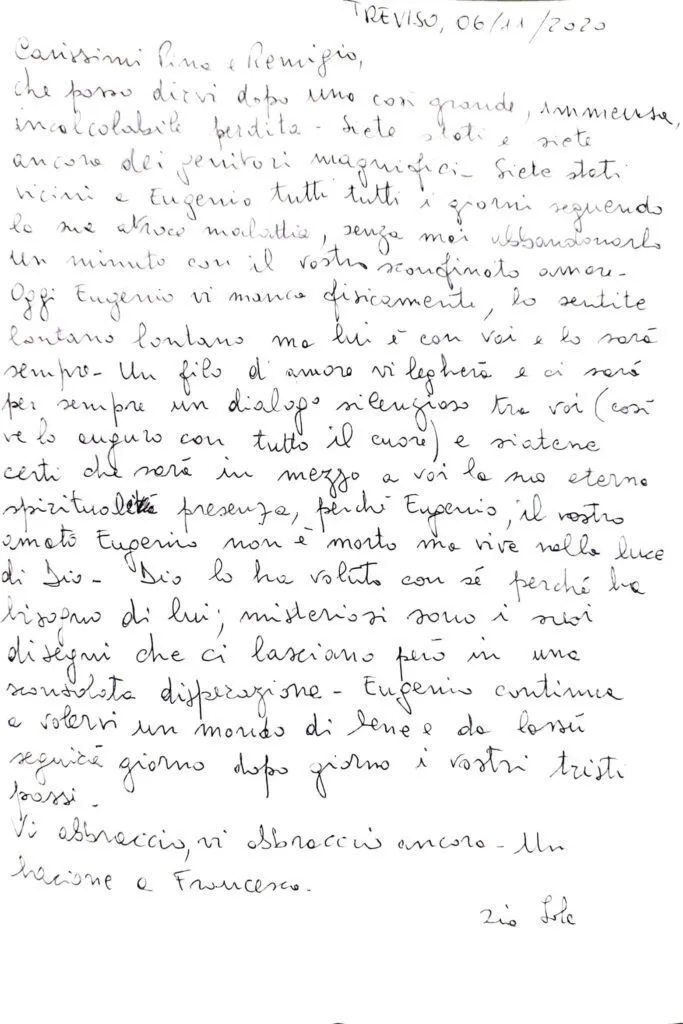 TREVISO, 06/11/2020
Carissimi Pina e Remigio,
che posso dirvi dopo una così grande, immensa,
incalcolabile perdita - Siete stati e siete
ancora dei genitori magnifici - Siete stati
vicini a Eugenio tutti tutti i giorni seguendo
la sua atroce malattia, senza mai abbandonarlo
un minuto con il vostro sconfinato amore -
Oggi Eugenio vi manca fisicamente, lo sentite
lontano lontano ma lui è con voi e lo sarà
sempre - Un filo d'amore vi legherà e ci sarà
per sempre un dialogo silenzioso tra voi (così
ve lo auguro con tutto il cuore) e siatene
certi che sarà in mezzo a voi la sua eterna
presenza, perché Eugenio, il vostro
amato Eugenio non è morto ma vive nella luce
di Dio - Dio lo ha voluto con sé perché ha
bisogno di lui; misteriosi sono i suoi
disegni che ci lasciano però in una
sconsolata disperazione - Eugenio continua
a volervi un mondo di bene e da lassù
seguirà giorno dopo giorno i vostri tristi
passi -
Vi abbraccio, vi abbraccio ancora - Un
bacione a Francesca.